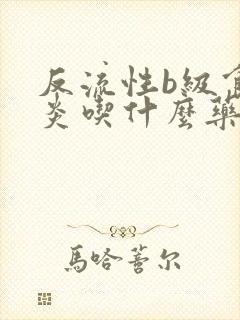 反流性b級食
炎喫什麼藥
馬哈善尔